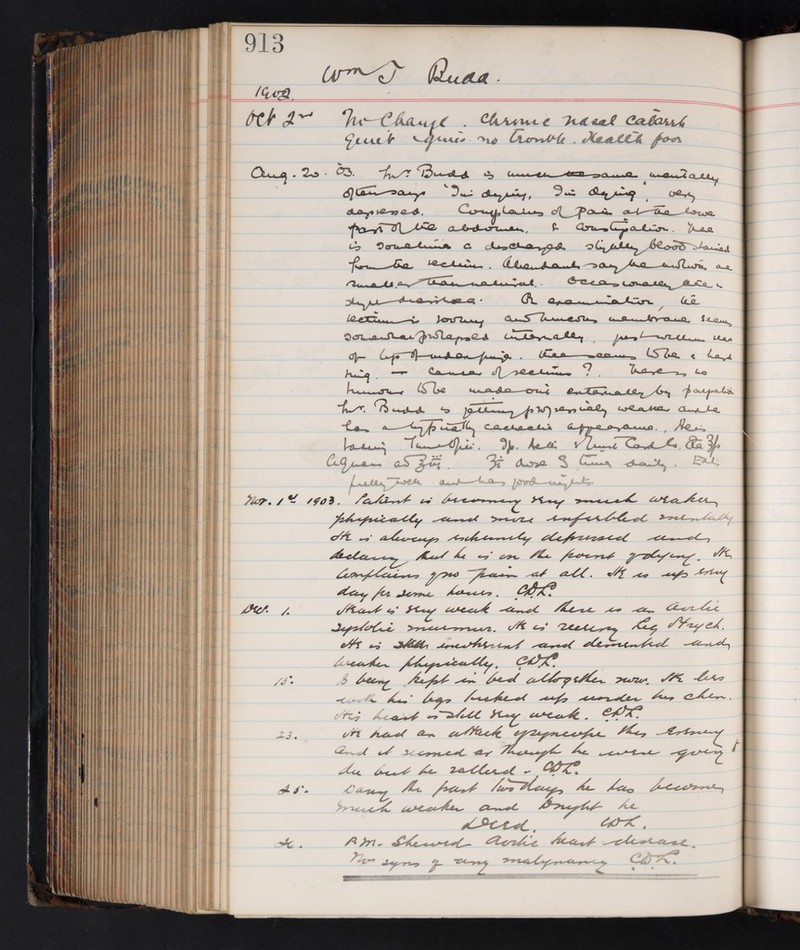 913
Wm J Budd.
1902.
Oct 2nd No Change. Chronic nasal Catarrh
Quiet & gives no trouble. Health poor
Aug. 20. 03. Mr. Budd is much the same mentally
often says "I'm dying, I'm dying", very
depressed. Complains of Pain at the lower
part of the abdomen, & Constipation. There
is sometimes a discharge slightly blood stained
from the rectum. Attendants say the motions are
smaller than natural. Occasionally there is
slight diarrhoea. On examination, the
rectum is roomy and mucous membrane seems
somewhat prolapsed internally, just within reach
of tip of index finger. there seems to be a hard
ring. — Cancer of rectum?. There is no
tumour to be made out externally by palpation
Mr. Budd is getting progressively weaker and he
has a typically cachectic appearance. He is
taking
Aquam ad 3 times daily. Eats
pretty well and has good nights
Nov. 1st 1903. Patient is becoming very much weaker
physically and more enfeebled mentally
He is always extremely depressed and
declaring that he is on the point of dying. He
Complains of no pain at all. He is up every
day for some hours. CDL.
Dec. 1. Heart is very weak and there is an Aortic
Systolic murmur. He is receiving Liq Strych.
He is still incoherent and demented and
weaker physically. CDL.
15. Is being kept in bed altogether now. He lies
with his legs tucked up under his chin.
His heart is still very weak. CDL.
23. He had an attack of syncope this evening
and it seemed as though he were going to
die but he rallied. CDL.
25. During the past two days he has become
much weaker and tonight he
Died. CDL.
P.M. Shewed Aortic heart disease.
No signs of any malignancy CDL.